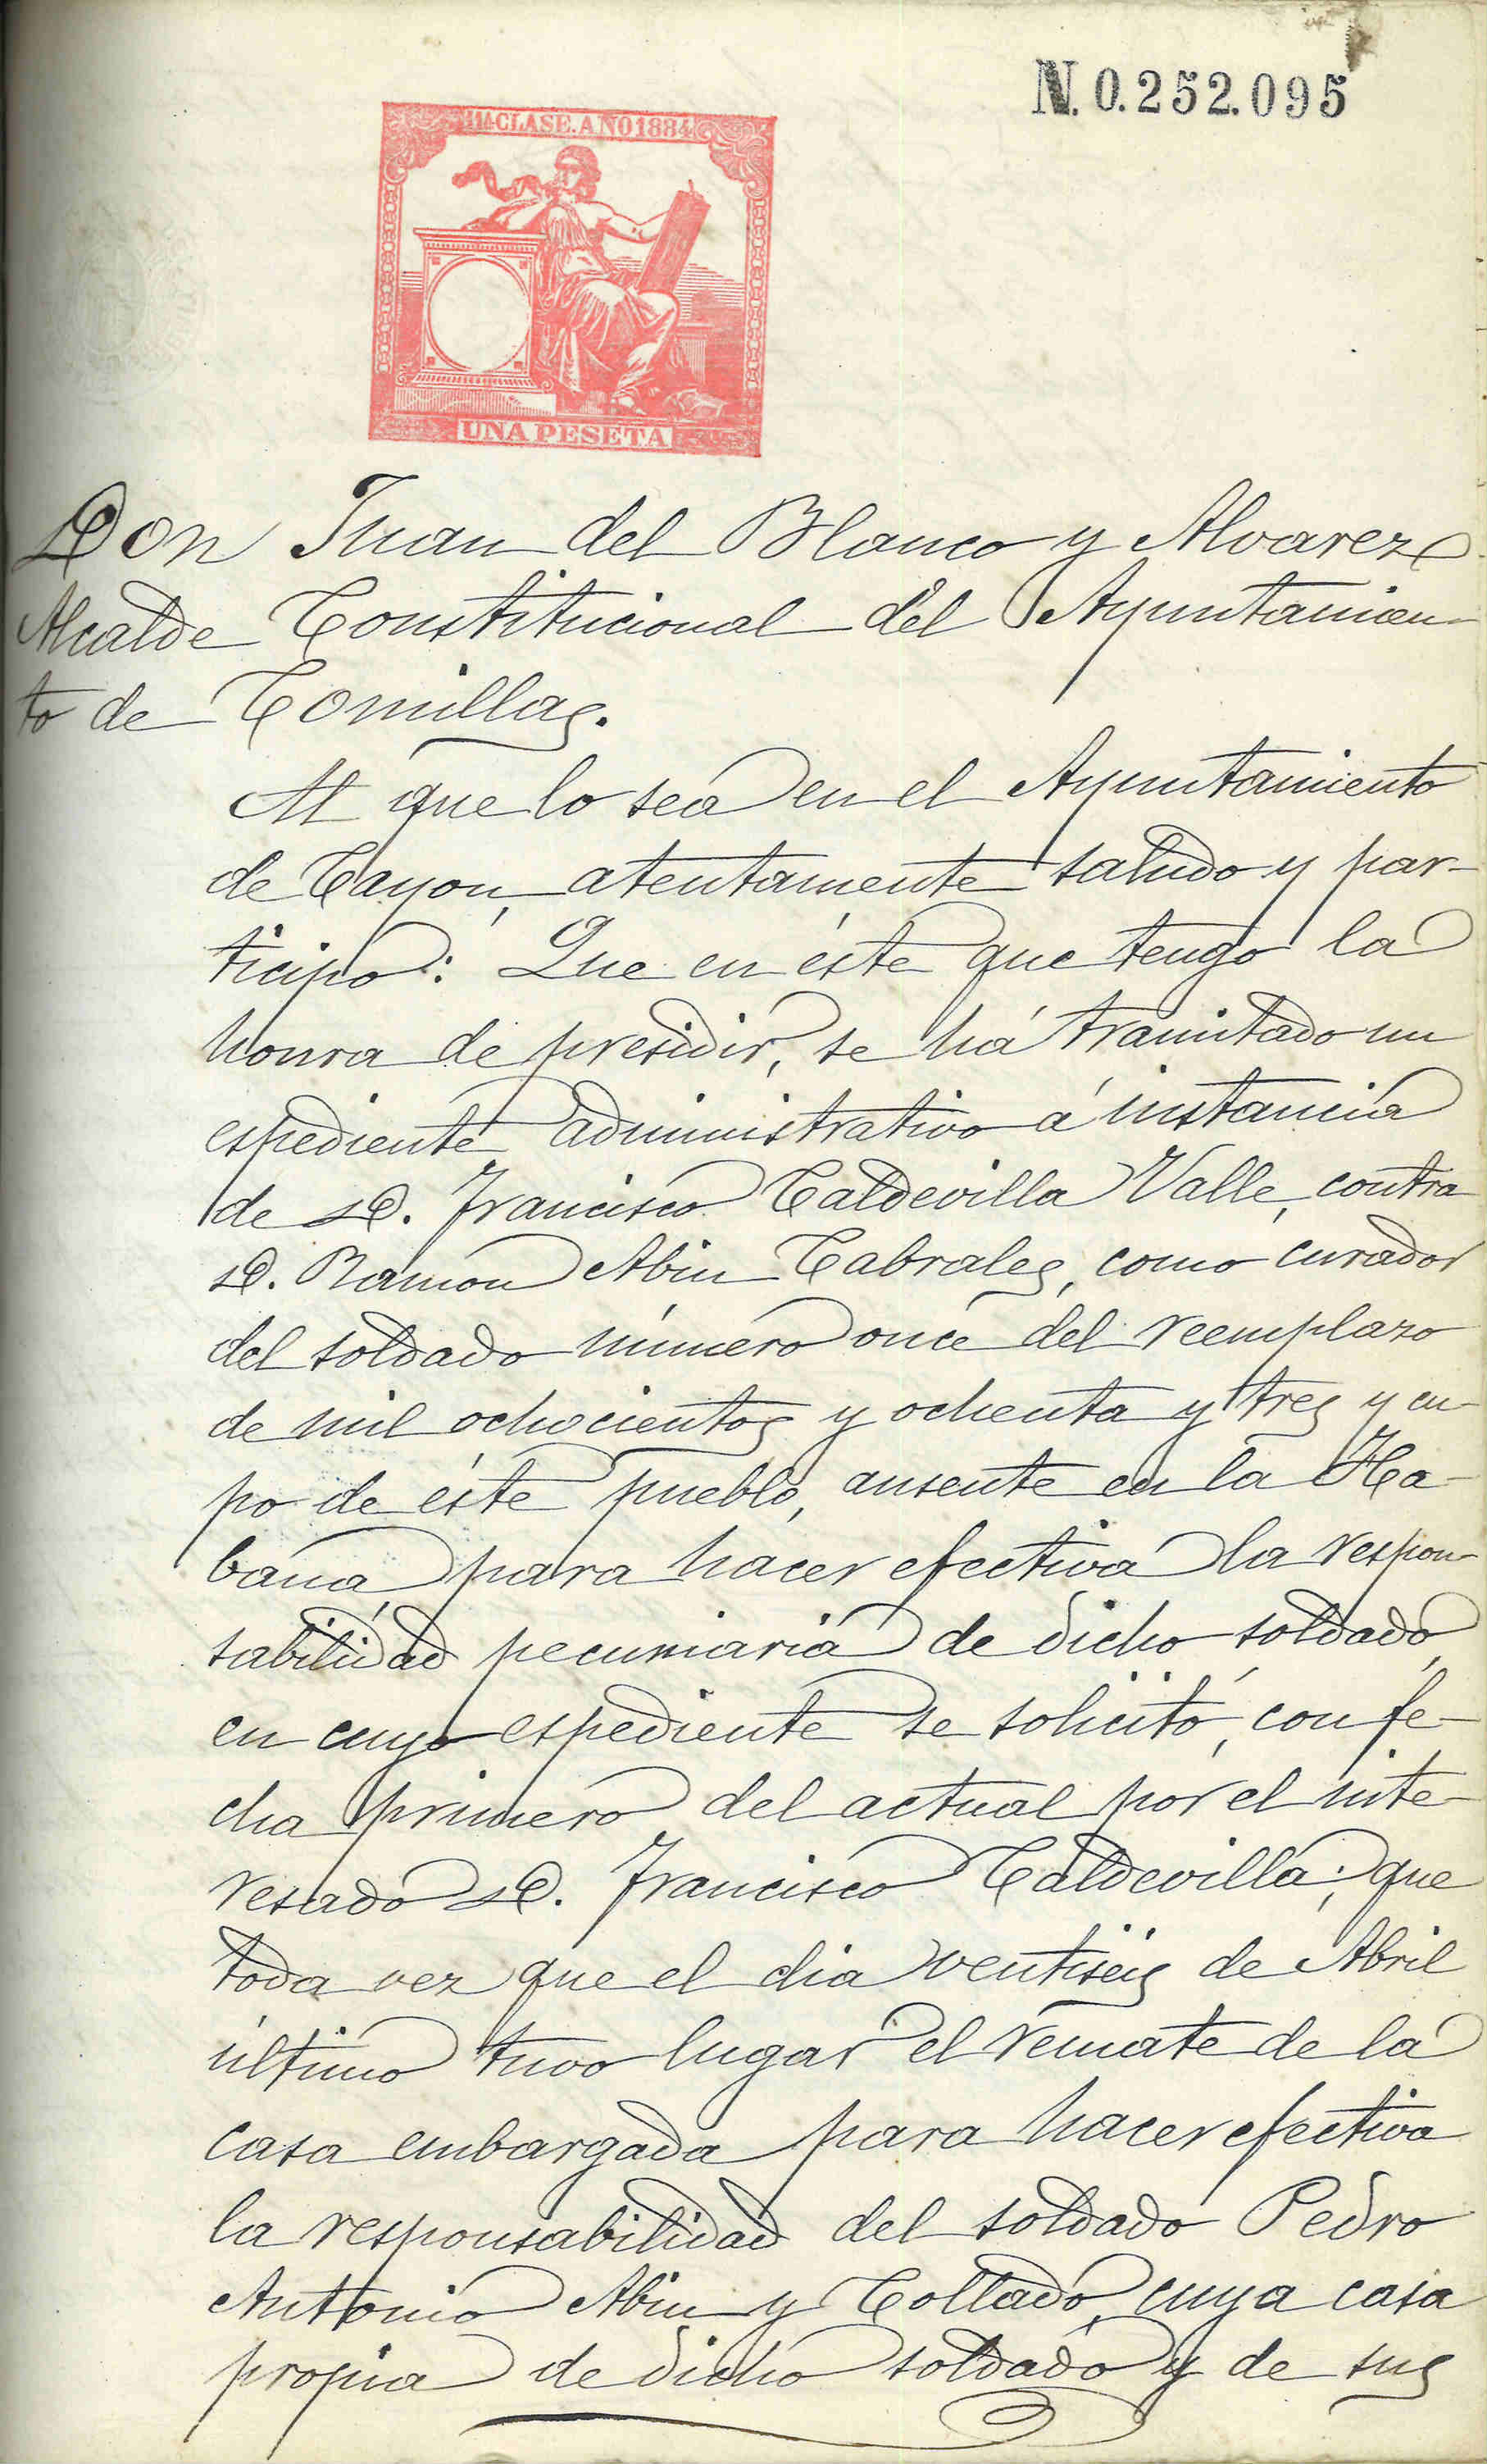 N. 0.252.095
11ª CLASE. AÑO 1884
UNA PESETA
Don Juan del Blanco y Alvarez
Alcalde Constitucional del Ayuntamien-
to de Comillas.
Al que lo sea en el Ayuntamiento
de Cayon, atentamente saludo y par-
ticipo: Que en éste que tengo la
honra de presidir, se há tramitado un
espediente administrativo á instancia
de D. Francisco Caldevilla Valle, contra
D. Ramon Abin Cabrales, como curador
del soldado número once del reemplazo
de mil ochocientos y ochenta y tres y cu-
po de éste pueblo, ausente en la Ha-
bana, para hacer efectiva la respon-
sabilidad pecuniaria de dicho soldado,
en cuyo espediente se solicitó, con fe-
cha primero del actual por el inte-
resado D. Francisco Caldevilla; que
toda vez que el dia ventiseis de Abril
último tuvo lugar el remate de la
casa embargada para hacer efectiva
la responsabilidad del soldado Pedro
Antonio Abin y Collado, cuya casa
propia de dicho soldado y de sus